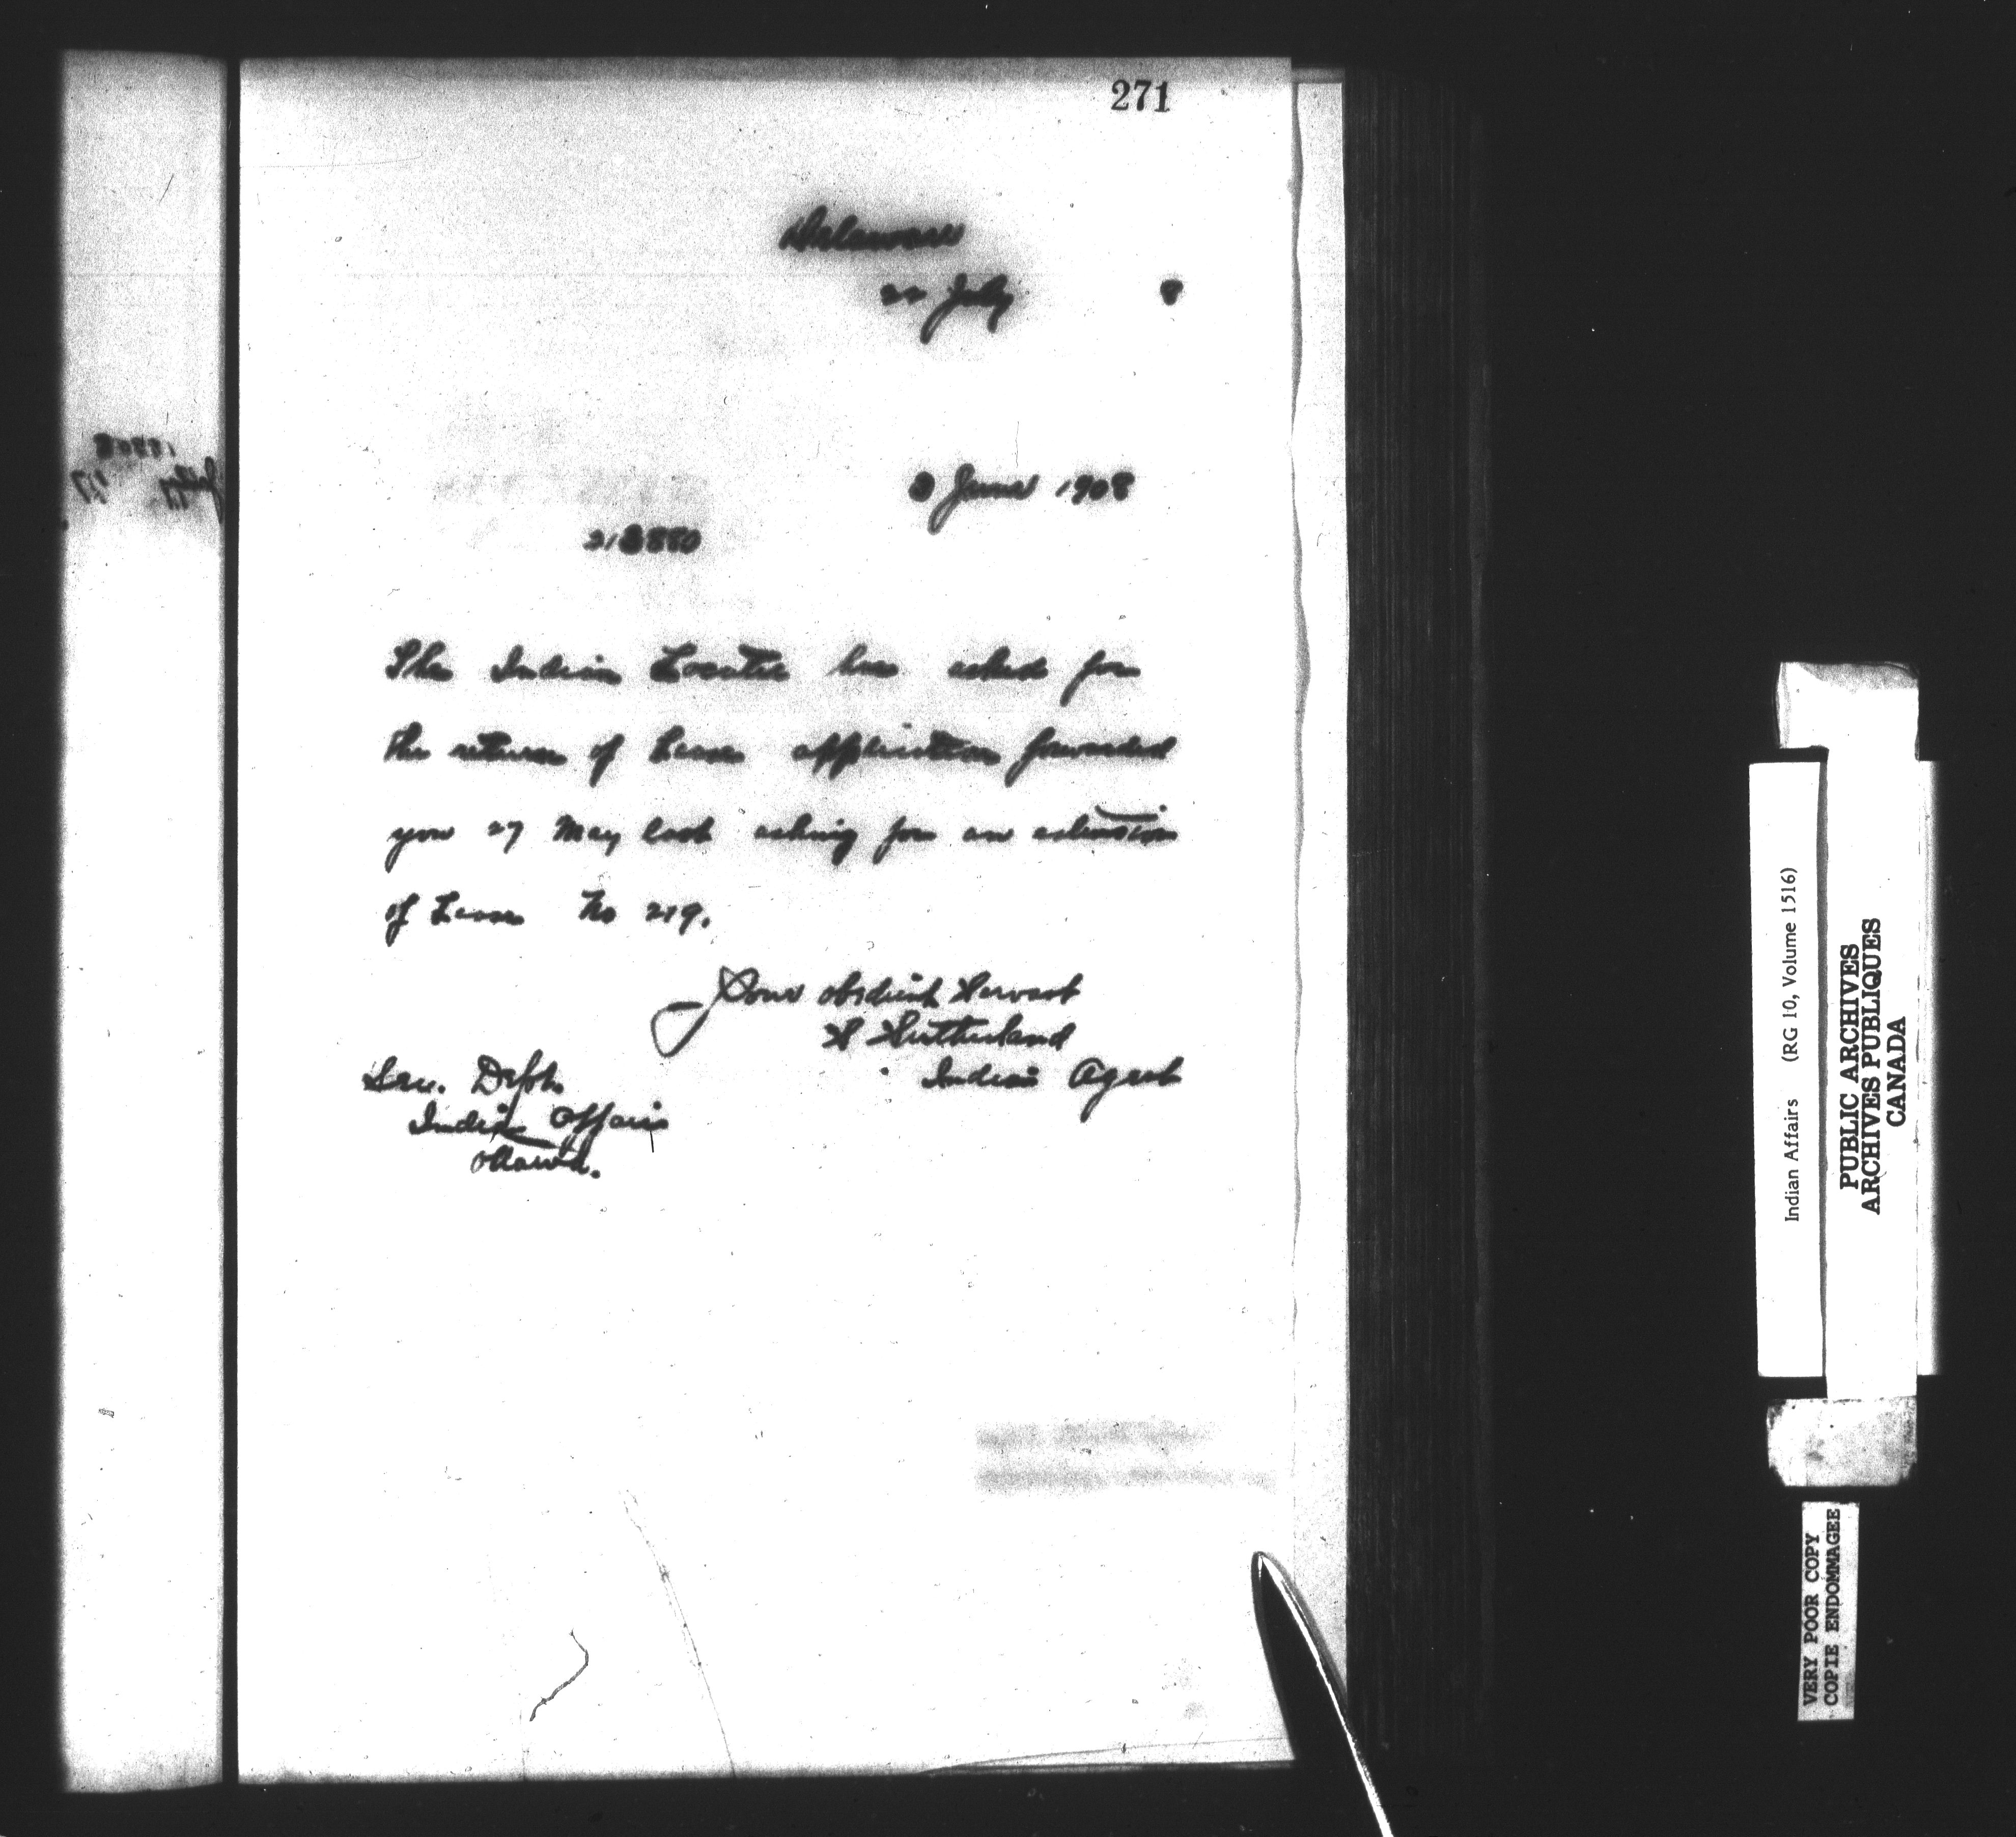 271
Delaware
22 July 8
3 June 1908
213880
The Indian Locatee has asked for
the return of Lease application forwarded
you 27 May last asking for an extension
of Lease No 219.
Your obedient Servant
S Sutherland
Indian Agent
Sec. Dept.
Indian Affairs
Ottawa.
Indian Affairs (RG 10, Volume 1516)
PUBLIC ARCHIVES
ARCHIVES PUBLIQUES
CANADA
VERY POOR COPY
COPIE ENDOMMAGEE